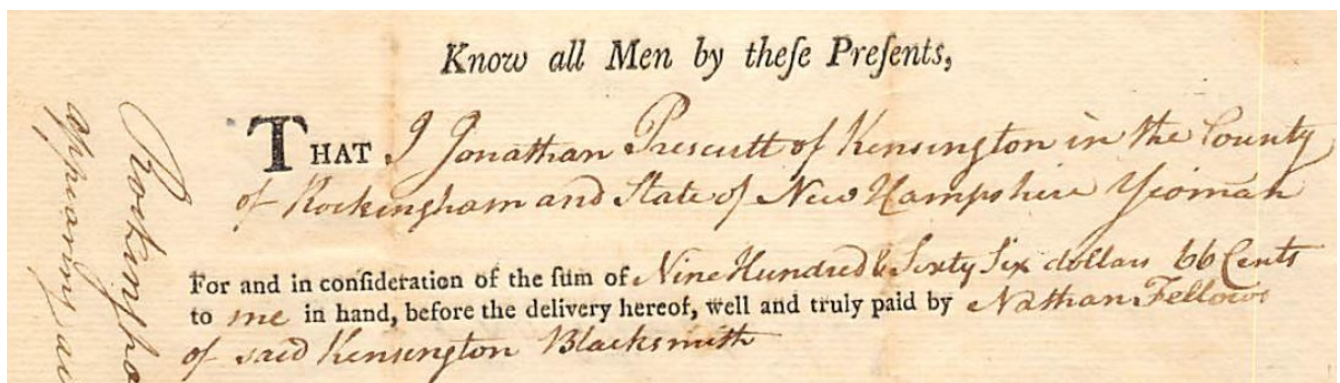 Know all Men by theſe Preſents,
THAT I Jonathan Prescutt of Kensington in the County
of Rockingham and State of New Hampshire Yeoman
For and in conſideration of the ſum of Nine Hundred & Sixty Six dollars 66 Cents
to me in hand, before the delivery hereof, well and truly paid by Nathan Fellows
of said Kensington Blacksmith